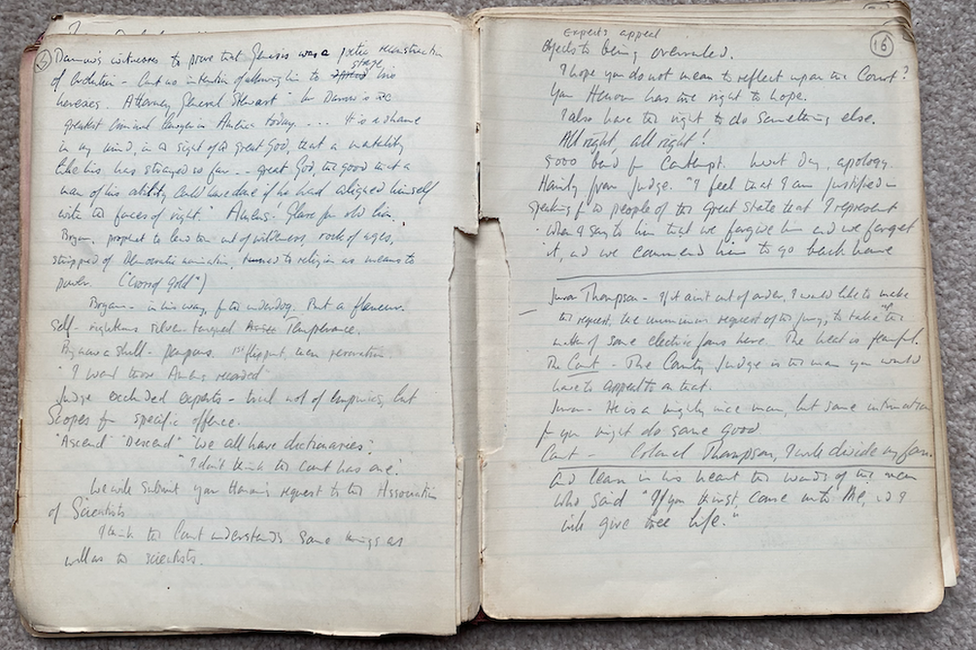 15
Darrow's witnesses to prove that Genesis was a poetic reconstruction
of Evolution - but no intention of allowing him to stage his
heresies. Attorney General Stewart " Mr Darrow is the
greatest criminal lawyer in America today. ... It is a shame
in my mind, in a sight of a great God, that a mentality
like his, has strayed so far - - great God, the good that a
man of his ability could have done if he had aligned himself
with the forces of right." Amens! Glare for old lion.
Bryan, prophet to lead them out of wilderness, rock of ages,
stripped of Democratic nomination, turned to religion as means to
power. ("Cross of Gold")
Bryan - in his way, for the underdog. But a
Self-righteous silver tongued Temperance.
By now a shell - pompous. 1st flippant, then
"I want those Amens recorded"
Judge excluded experts - trial not of empirics, but
Scopes for specific offence.
"Ascend" "Descend" "We all have dictionaries".
"I don't think the court has one".
We will submit your Honour's request to the Association
of Scientists
I think the Court understands some things as
well as the scientists.
Experts appeal
16
Objects to being overruled.
I hope you do not mean to reflect upon the Court?
Your Honour has the right to hope.
I also have the right to do something else.
All right, all right!
5000 bond for Contempt. Next Day, apology.
Homily from Judge. "I feel that I am justified in
speaking for the people of the Great State that I represent
when I say to him that we forgive him and we forget
it, and we commend him to go back home
Juror Thompson - If it ain't out of order, I would like to make
the request, the unanimous request of the Jury, to take up the
matter of some electric fans here. The heat is fearful.
The Court - The County Judge is the man you would
have to appeal to on that.
Juror - He is a mighty nice man, but some intimation
from you might do some good
Court - Colonel Thompson, I will divide my fan.
And learn in his heart the words of the man
who said "If you thirst come unto Me, and I
will give thee life."